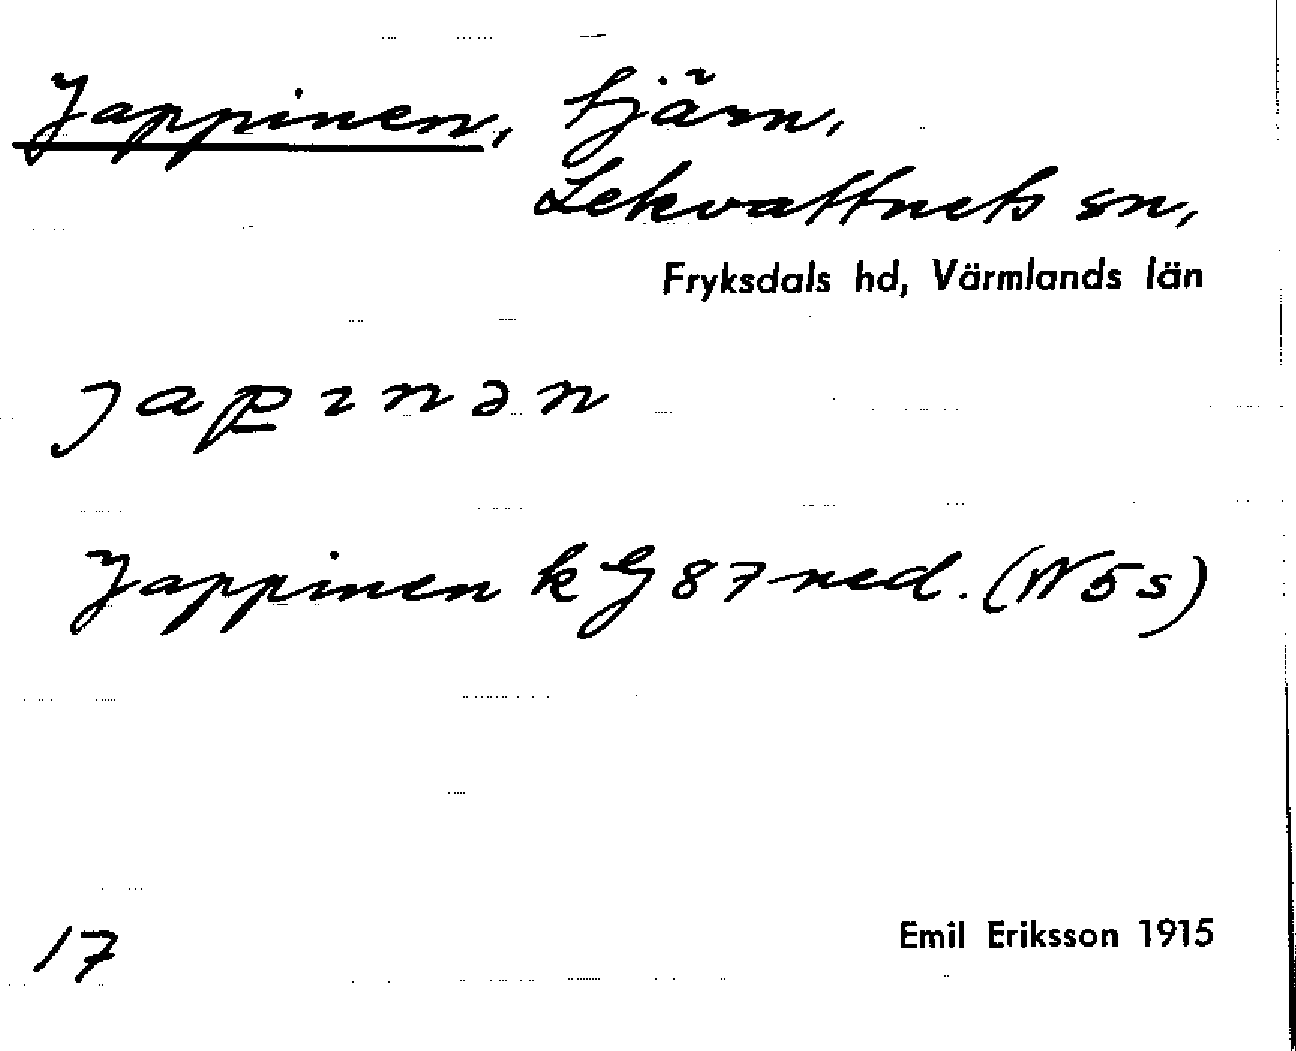 Jappinen, tjärn,
Lekvattnets sn,
Fryksdals hd, Värmlands län
japınən
Jappinen k G 87 ned. (N5s)
17
Emil Eriksson 1915